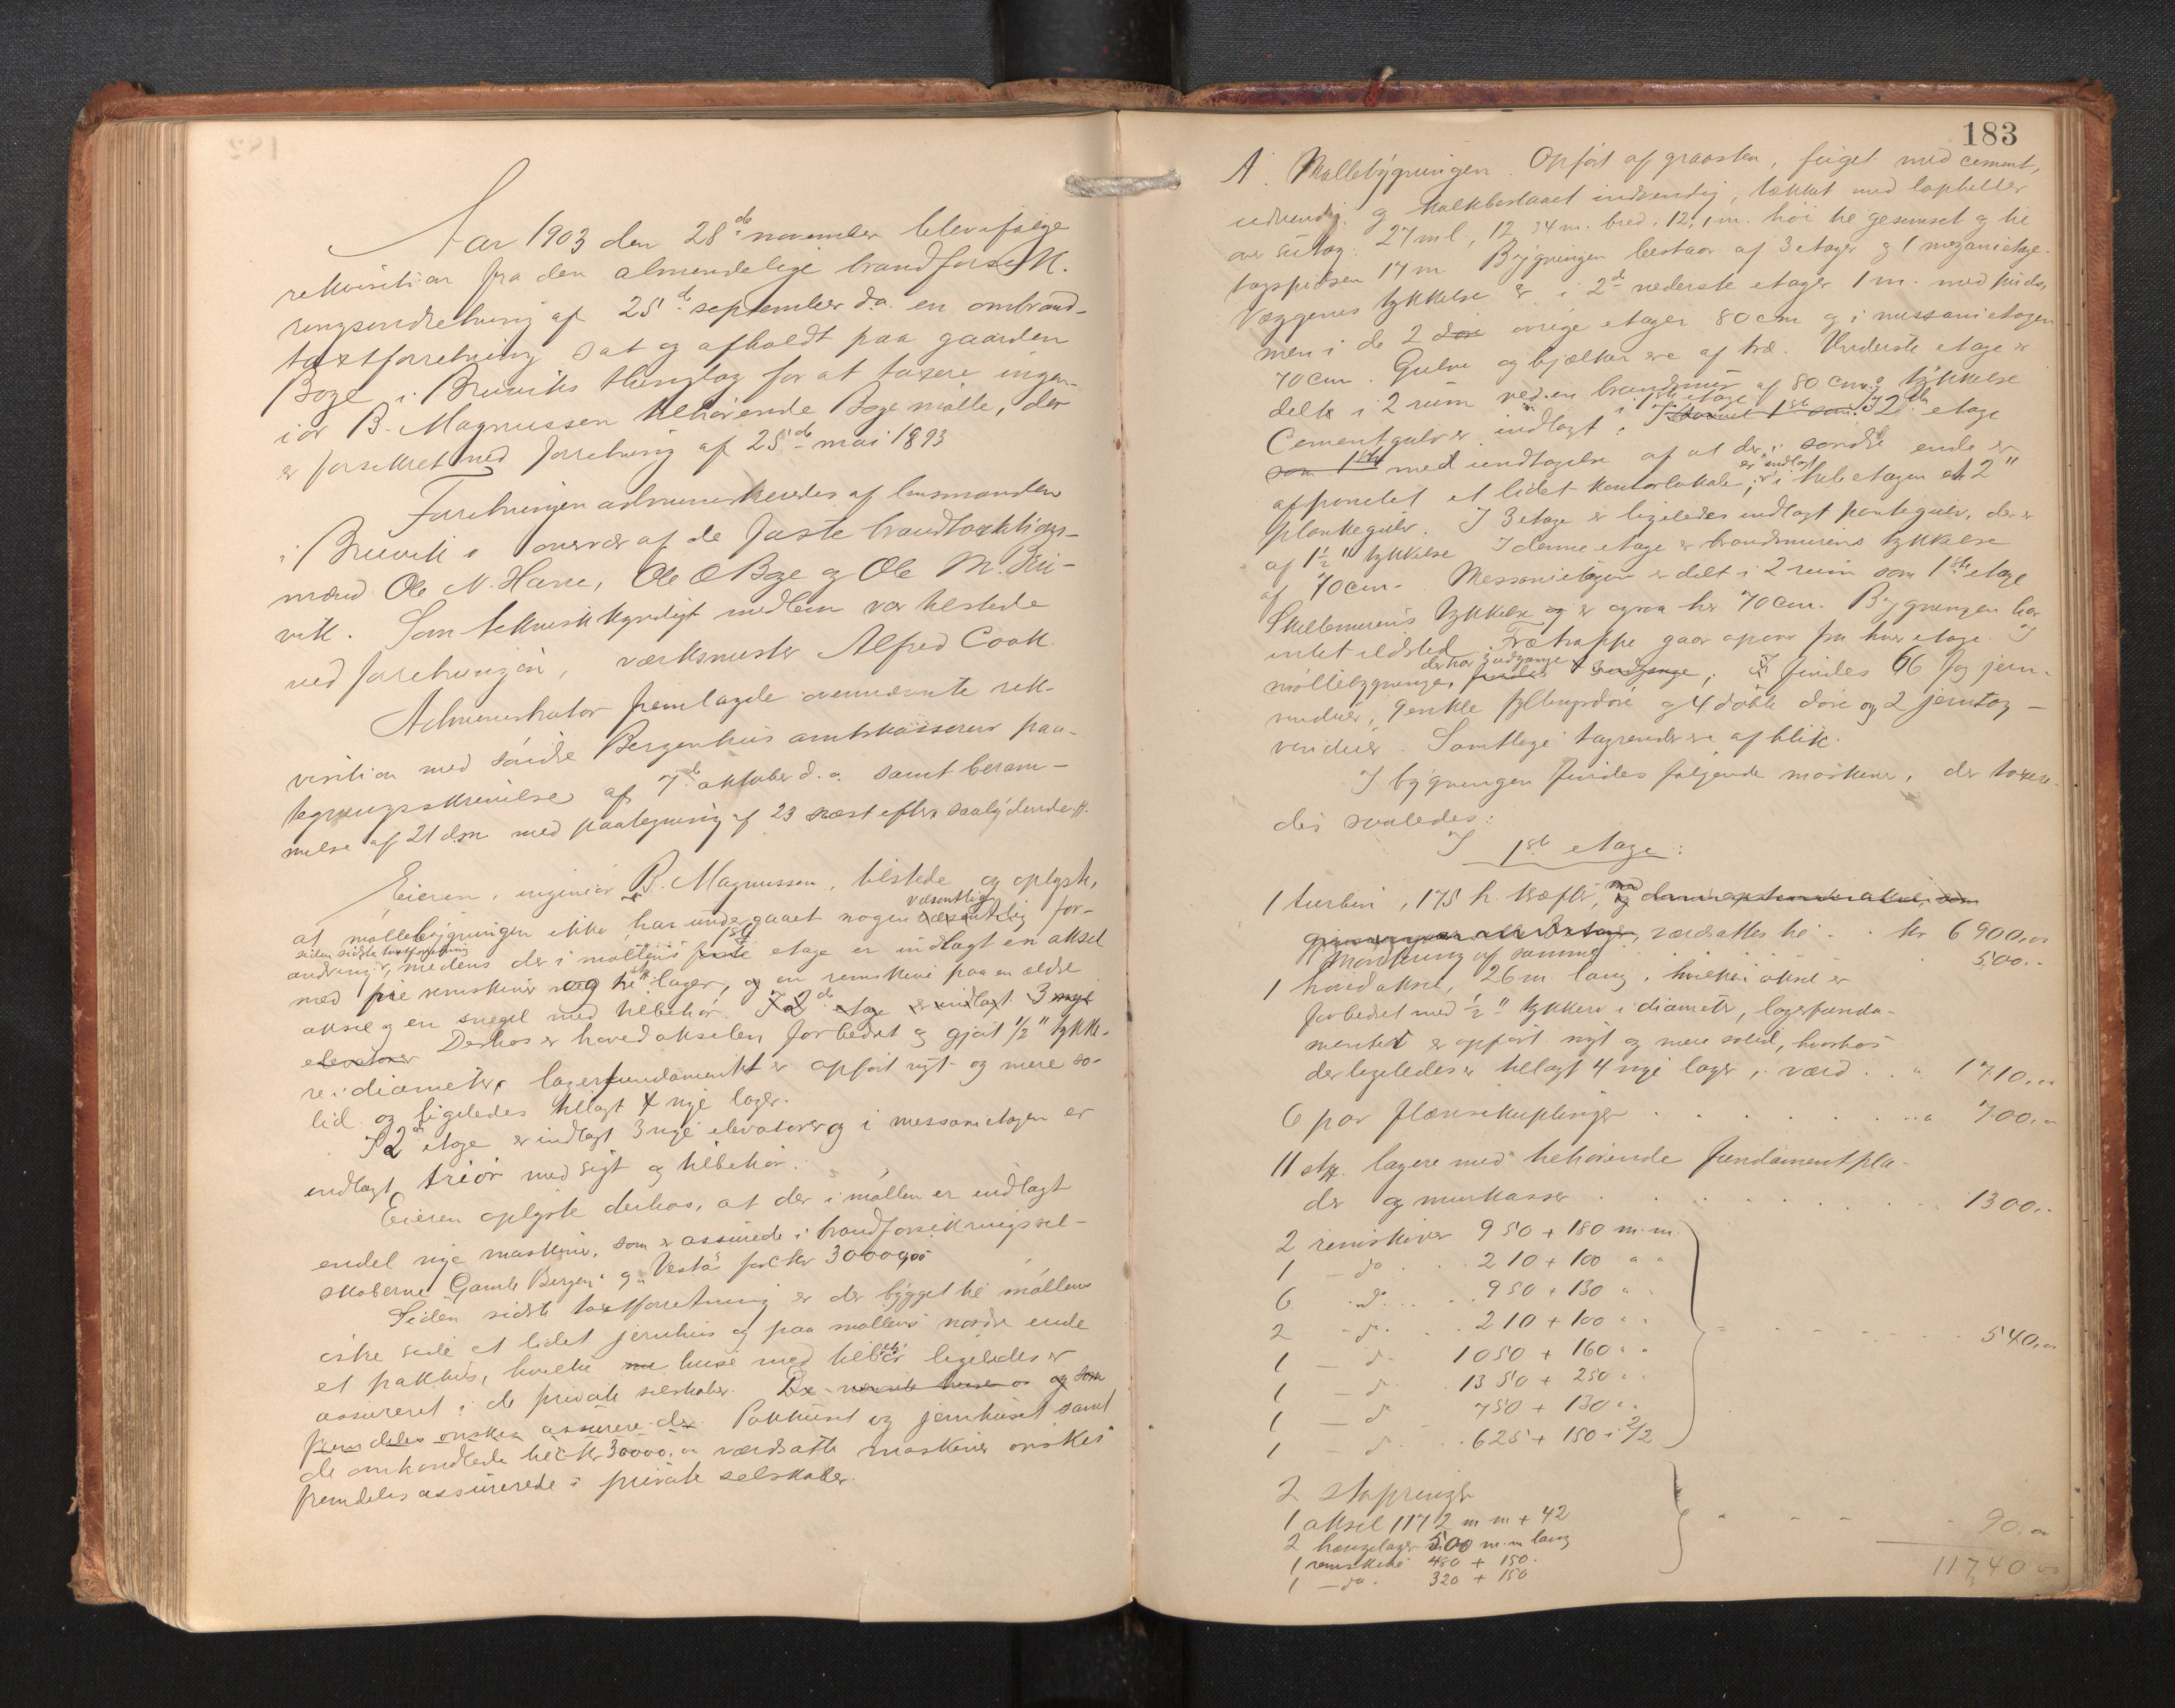 Aar 1903 den 28de november blev ifølge
rekvisition fra den almindelige brandforsik-
ringsindretning af 25de september d.a. en ombrand-
taxtforretning sat og afholdt paa gaarden
Boge i Bruviks thinglag for at taxere ingen-
iør B. Magnussen tilhørende Boge mølle, der
er forsikret ved forretning af 25de mai 1893
Forretningen administreredes af lensmanden
i Bruvik i overvær af de faste brandtaxtions-
mænd Ole N. Hane, Ole O Boge og Ole M. Bru-
vik. Som teknisk kyndigt medlem var tilstede
ved forretningen, værksmester Alfred Cook.
Administrator fremlagde ovennævnte rek-
visition med søndre Bergenhus amtskasserers paa-
tegningsskrivelse af 7de oktober d.a. samt beram-
melse af 21 dsm med paategning af 23 næst efter saalydende.
Eieren, ingeniør B. Magnussen, tilstede og oplyste,
at møllebygningen ikke har undergaaet nogen væsentlig væsentlig for-
andring siden sidste taxtforretning, medens der i møllens første 1ste etage er indlagt en aksel
med fire remskiver og ti stk. lager, og en remskive paa en ældre
aksel og en snegel med tilbehør. I 2de etage er indlagt 3 nye
elevatorer Derhos er hovedakselen forbedret og gjort 1/2" tykke-
re i diameter, lagerfundamentet er opført nyt og mere so-
lid og ligeledes tillagt 4 nye lager.
I 2de etage er indlagt 3 nye elevatorer og i messanietagen er
indlagt trieør med sigt og tilbehør.
Eieren oplyste derhos, at der i møllen er indlagt
endel nye maskiner, som er assurede i brandforsikringssel-
skaberne "Gamle Bergen" og "Vesta" for kr 30000,00
Siden sidste taxtforretning er der bygget til møllens
østre side et lidet jernhus og paa møllens nordre ende
et pakhus, hvilke huse med tilbehør ligeledes er
assureret i de private selskaber. og som
fremdeles ønskes assurere der. Pakhuset og jernhuset samt
de omhandlede til kr 30000,00 værdsatte maskiner ønskes
fremdeles assurerede i private selskaber.
183
A. Møllebygningen. Opført af graasten, fuget med cement,
udvendig og kalkbeslaaet indvendig, tækket med lapheller
over sutag. 27 m l., 12,34 m. bred, 12,1 m. høi til gesimset og til
tagspidsen 17 m Bygningen bestaar af 3 etager og 1 mezanietage.
Væggenes tykkelse er i 2de nederste etager 1 m. med puds,
men i de 2 øvrige etager 80 cm og i messanietagen
70 cm. Gulve og bjælker ere af træ. Underste etage er
delt i 2 rum ved en brandmur af 80 cm.s tykkelse
Cementgulv er indlagt i 1ste etage I 2den etage
som 1ste med undtagelse af at der i søndre ende er
afpanelet et lidet kontorlokale, er indlagt i hele etagen et 2"
plankegulv. I 3 etage er ligeledes indlagt plankegulv, der er
af 1 1/2" tykkelse I denne etage er brandmurens tykkelse
af 70 cm. Messanietagen er delt i 2 rum som 1ste etage
Skillemurens tykkelse er ogsaa her 70 cm. Bygningen har
intet ildsted. Trætrappe gaar opover fra hver etage. I
møllebygningen, der har 3 udgange findes 3 udgange, findes 66 fag jern-
vinduer, 9 enkle fyldingsdøre og 4 dobble døre og 2 jerntag-
vinduer. Samtlige tagrender er af blik.
I bygningen findes følgende maskiner, der taxere-
des saaledes:
I 1ste etage:
1 turbin, 175 h. kræfter, med
værdsattes til . . kr 6900,00
Montering af samme . 500 ..
1 hovedaksel, 26 m. lang, hvilken aksel er
forbedret med 1/2" tykkere i diameter, lagerfunda-
mentet er opført nyt og mere solid, hvorhos
der ligeledes er tillagt 4 nye lager, værd . . " 1710,00
6 par flænsekuplinger . . . . . . . " 700,00
11 stk. lagere med tilhørende fundamentpla-
der og murkasser . . . . . . . 1300..
2 remskiver 950 + 180 m.m.
1 — do . . 210 + 100 " "
6 do . . . 950 + 130 " "
2 - do . . 210 + 100 " "
1 — do 1050 + 160 " " 540,00
1 — do . 1350 + 250 " "
1 — do 750 + 130 " "
1 — do . . 625 + 150 i 2/2
2 stopringe
1 aksel 1172 m m + 42 90,00
2 hængelager 500 m.m lang
1 remskive 480 + 150.
1 — do. 320 + 150
11740 00